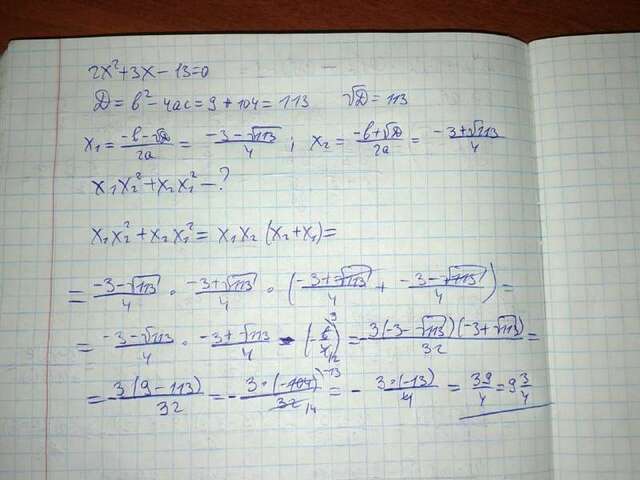 2x²+3x-13=0
D=b²-4ac=9+104=113 √D=113
x₁=(-b-√D)/2a=(-3-√113)/4; x₂=(-b+√D)/2a=(-3+√113)/4
x₁x₂²+x₂x₁²-?
x₁x₂²+x₂x₁²=x₁x₂(x₂+x₁)=
=(-3-√113)/4·(-3+√113)/4·((-3+√113)/4+(-3-√113)/4)=
=(-3-√113)/4·(-3+√113)/4·(-6/4)=-3(-3-√113)(-3+√113)/32=
=-3(9-113)/32=-3·(-104)/32=-3·(-13)/4=39/4=9 3/4